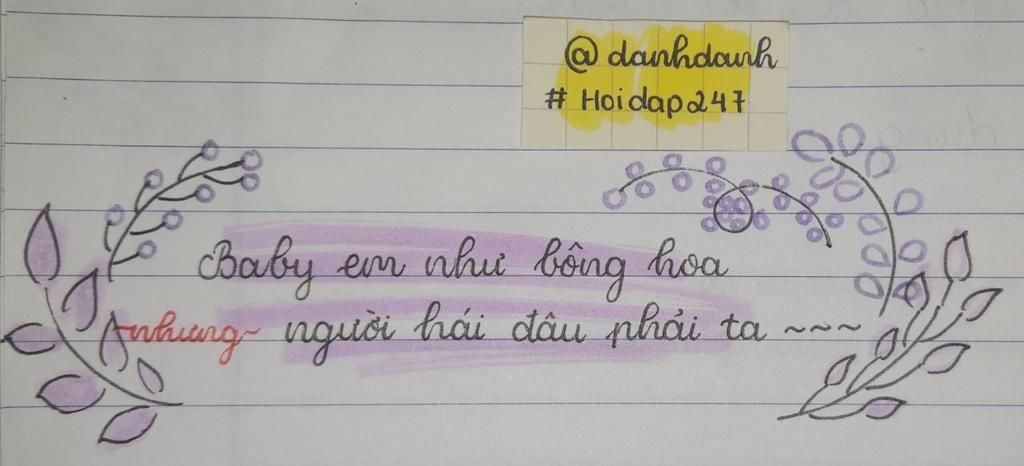 @danhdanh
# Hoidap247
Baby em như bông hoa
~nhưng~ người hái đâu phải ta ~~~